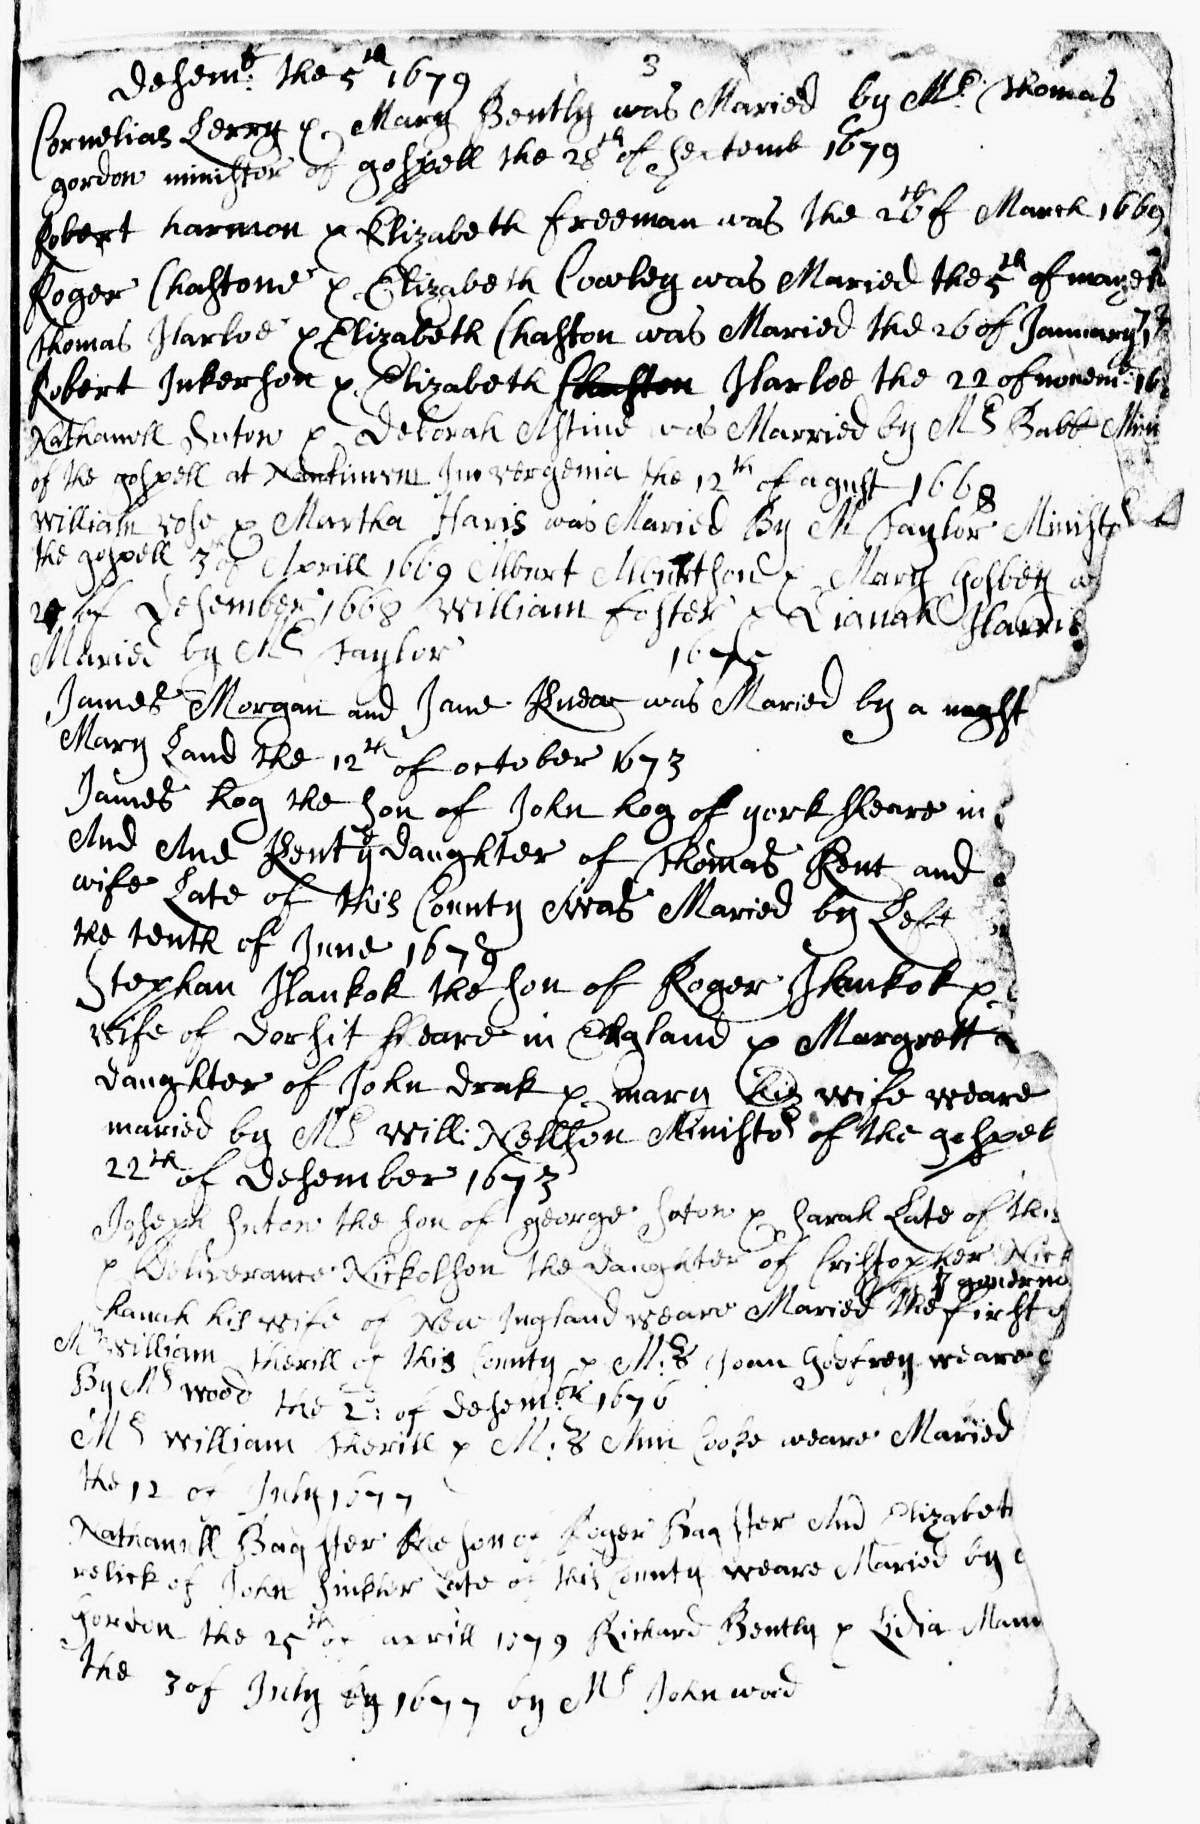 3
Desem^b: the 5^th 1679
Cornelias Lerry p Mary Bently was Maried by M^r: Thomas
gordon minister of gospell the 28^th of septemb 1679
Robert harmon p Elizabeth freeman was the 26^th of March 1669
Roger Chastone p Elizabeth Cowley was Maried the 5^th of
Thomas Harloe p Elizabeth Chaston was Maried the 26 of January
Robert Inkerson p Elizabeth Chaston Harloe the 22 of novem: 16
Nathaniell Suton p Deborah Astine was Married by M^r Babb Min
of the gospell at In vergenia the 12^th of agust 1668
William vose p Martha Haris was Maried By M^r Taylor Ministe
the gospell 3^d of Aprill 1669 Albert Albertson p Mary gosbey
of Desember 1668 William foster p Dianah Harris
Maried by M^r Taylor 1676
James Morgan and Jane was Maried by a
Mary Land the 12^th of october 1673
James hog the son of John hog of york sheare in
And Ane Kent y^e daughter of Thomas Kent and
wife Late of this County was Maried by Left
the tenth of June 1679
Stephan Hankok the son of Roger Hankok p
wife of dorsit sheare in England p Margrett
daughter of John drak p mary his wife weare
maried by M^r Will: Nellson Minister of the gospel
22^th of desember 1673
Joseph Suton the son of george Soton p Sarah Late of this
p Deliverance Nickolson the daughter of Cristopher Nick
by y^e governo
hanah his wife of New Ingland weare Maried the first
M^r William Therill of this County p M^rs Joan Godfrey weare
By M^r Wood the 2: of desem^br: 1676
M^r William Therill p M^rs Ann Cooke weare Maried
the 12 of July 1677
Nathaniell Bagster the son of Roger Bagster And Elizabet
relick of John Late of this County weare Maried by
Gordon the 25^th of aprill 1679 Richard Bently p Lidia Mann
the 3 of July 1677 by M^r John wood